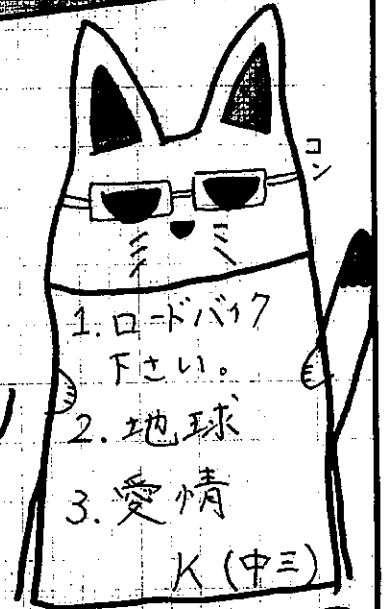 コン
1. ロードバイク
下さい。
2. 地球
3. 愛情
K (中三)